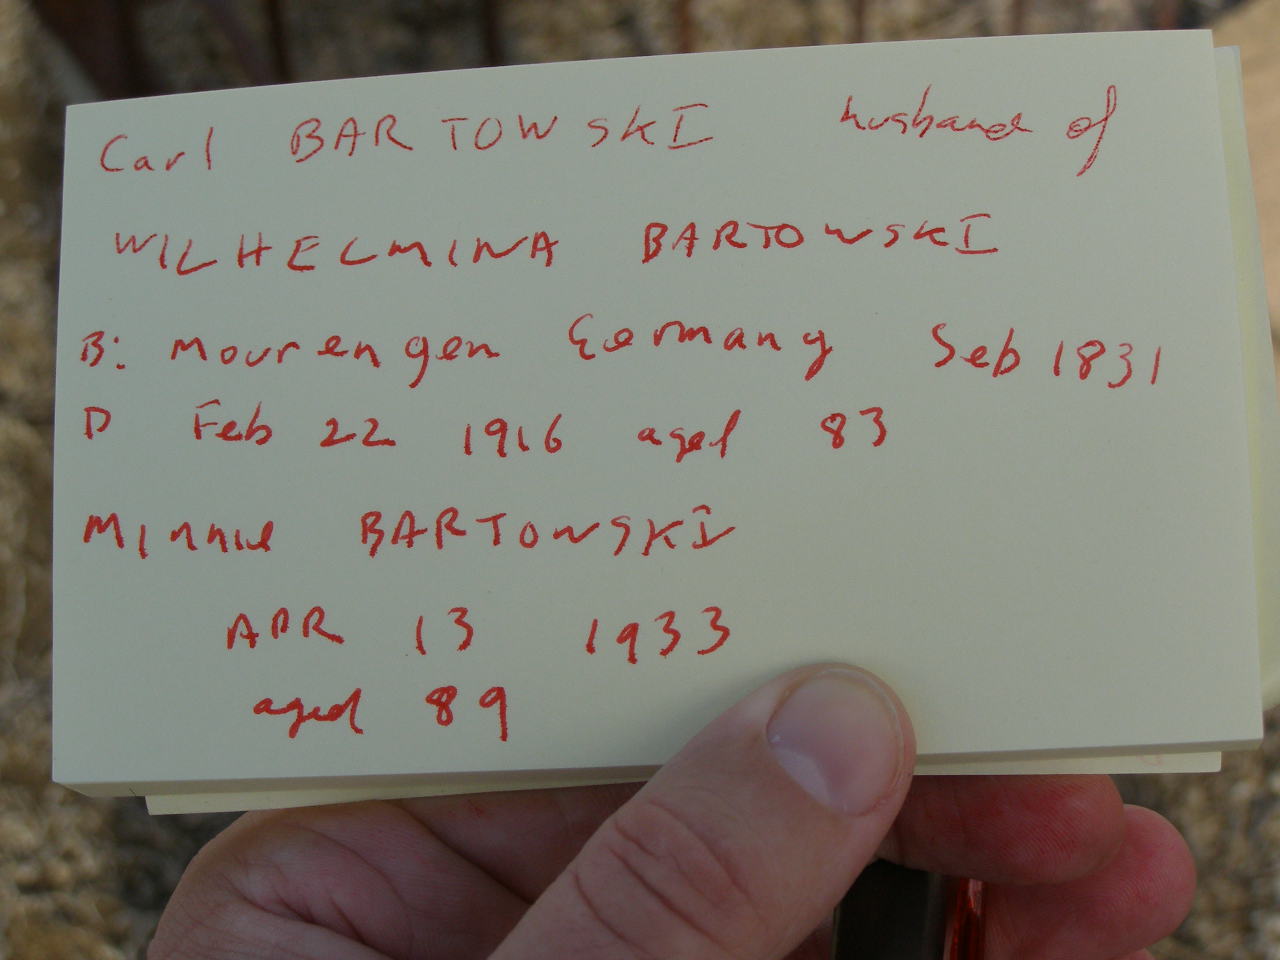 Carl BARTOWSKI husband of
WILHELMINA BARTOWSKI
B: Mourengen Germany Seb 1831
D Feb 22 1916 aged 83
Minnie BARTOWSKI
APR 13 1933
aged 89